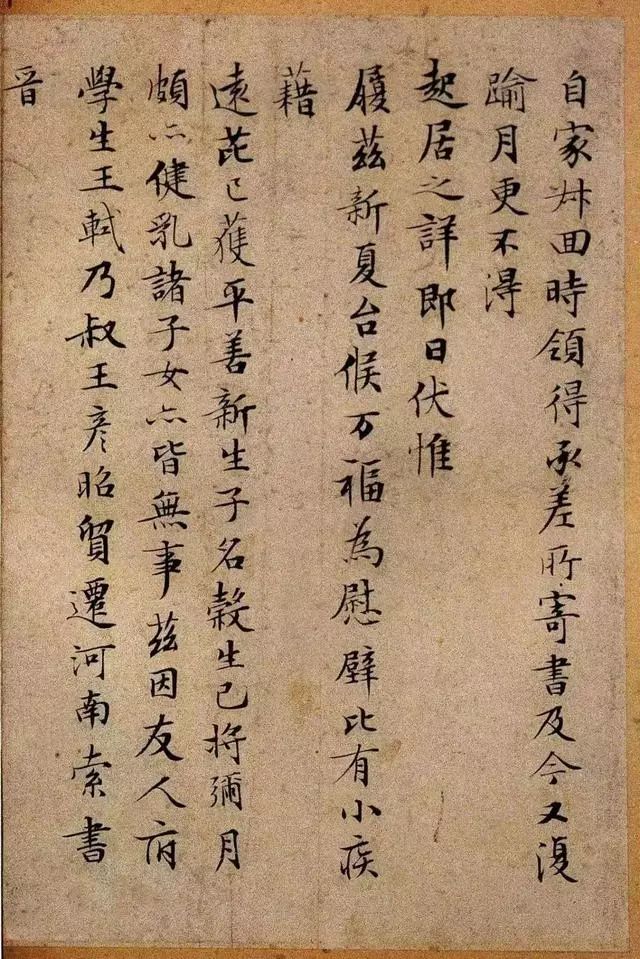 自家回時領得承差所寄書及今又復
踰月更不得
起居之詳即日伏惟
履茲新夏台候万福為慰璧比有小疾
藉
遠芘已獲平善新生子名穀生已將彌月
頗亦健乳諸子女亦皆無事茲因友人府
學生王軾乃叔王彥昭貿遷河南索書
晉